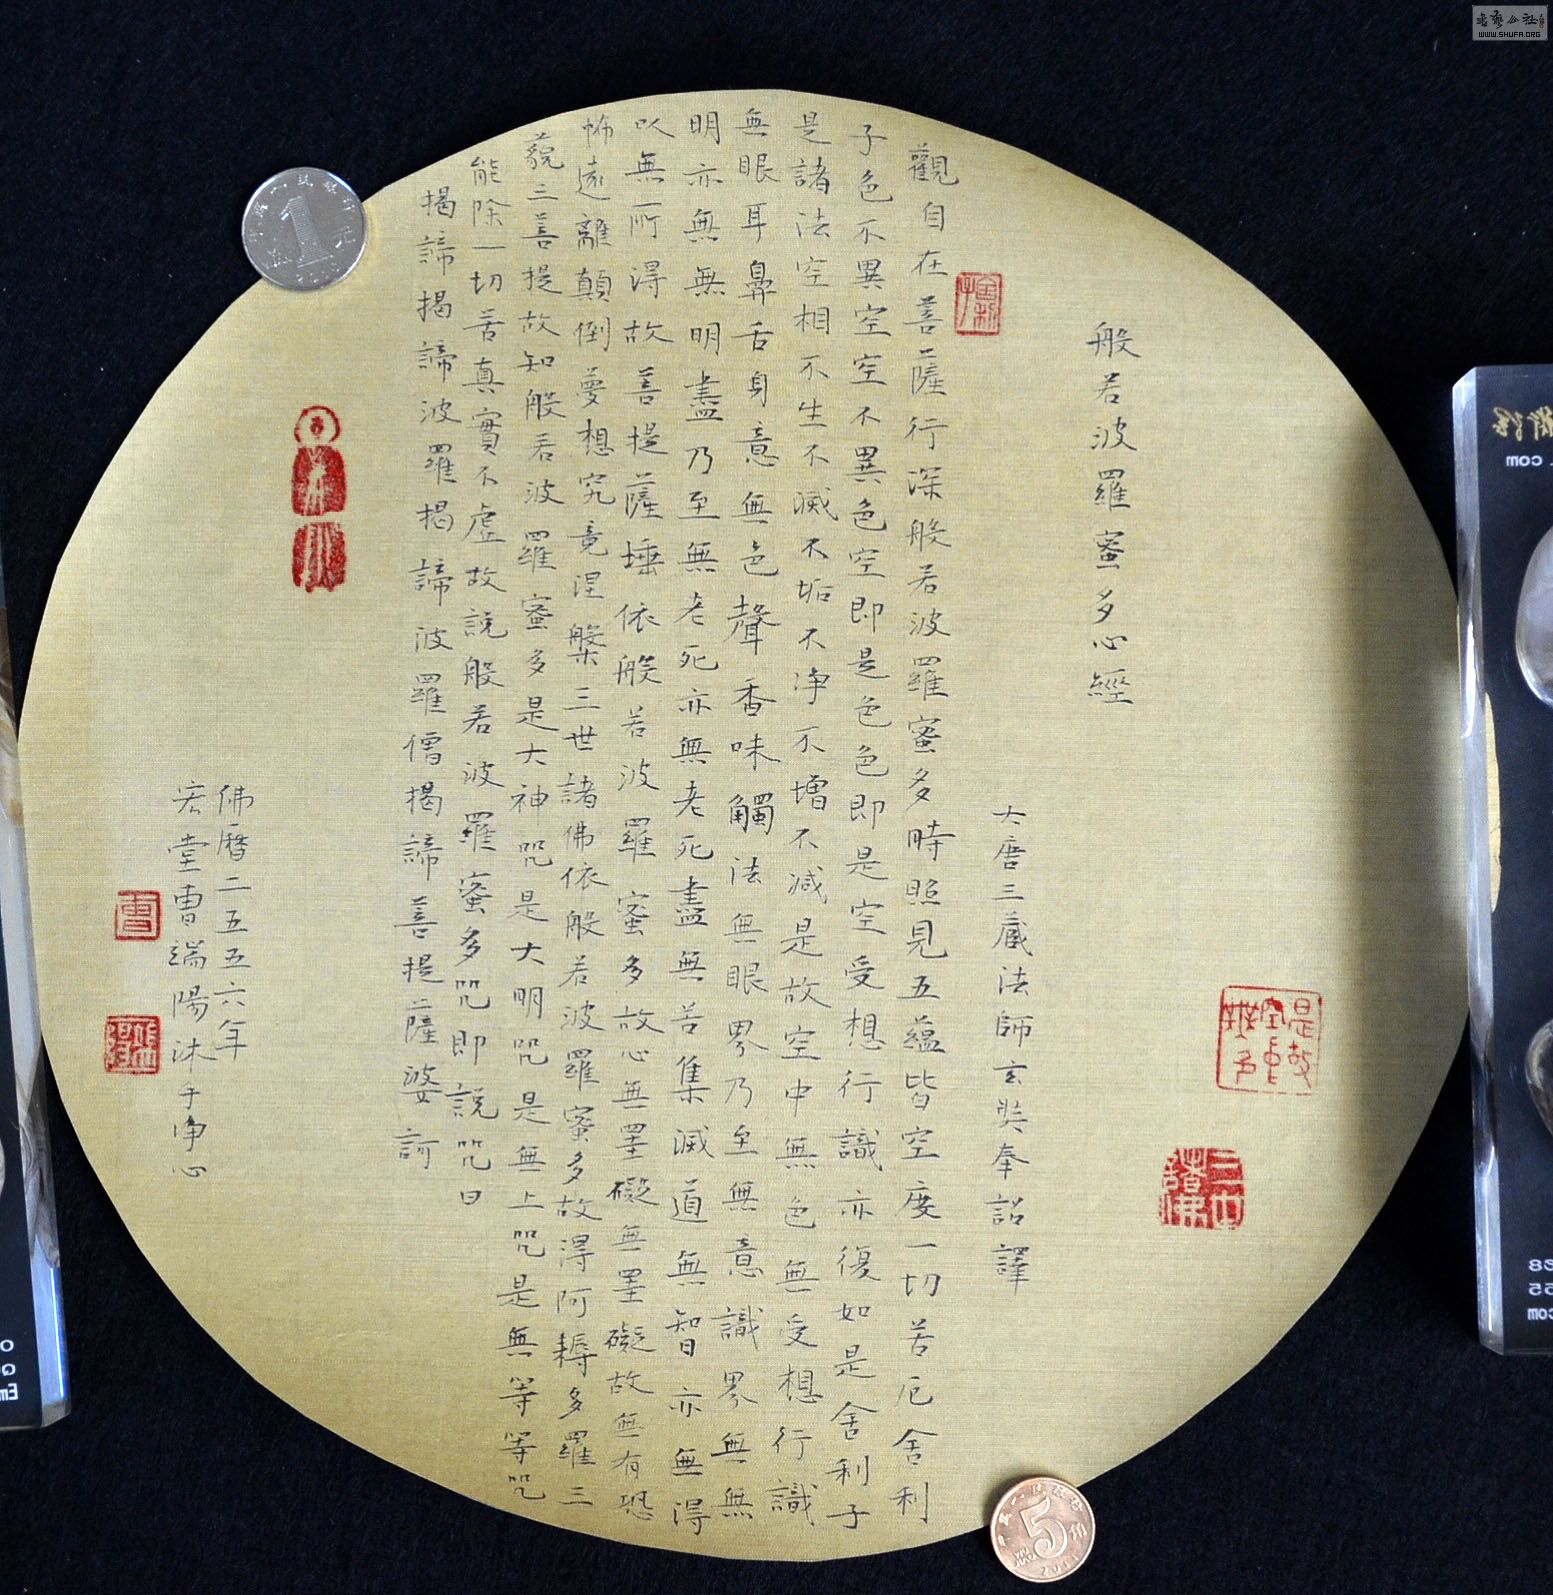 般若波羅蜜多心經
大唐三藏法師玄奘奉詔譯
觀自在菩薩行深般若波羅蜜多時照見五蘊皆空度一切苦厄舍利
子色不異空空不異色空即是色色即是空受想行識亦復如是舍利子
是諸法空相不生不滅不垢不净不增不減是故空中無色無受想行識
無眼耳鼻舌身意無色聲香味觸法無眼界乃至無意識界無無
明亦無無明盡乃至無老死亦無老死盡無苦集滅道無智亦無得
以無所得故菩提薩埵依般若波羅蜜多故心無罣礙無罣礙故無有恐
怖遠離顛倒夢想究竟涅槃三世諸佛依般若波羅蜜多故得阿耨多羅三
藐三菩提故知般若波羅蜜多是大神咒是大明咒是無上咒是無等等咒
能除一切苦真實不虛故說般若波羅蜜多咒即說咒曰
揭諦揭諦波羅揭諦波羅僧揭諦菩提薩婆訶
佛曆二五五六年
宏堂曹端陽沐手净心
舍利子
是故空中無色
三世諸佛
曹
端陽
1
5角
WWW.SHUFA.ORG